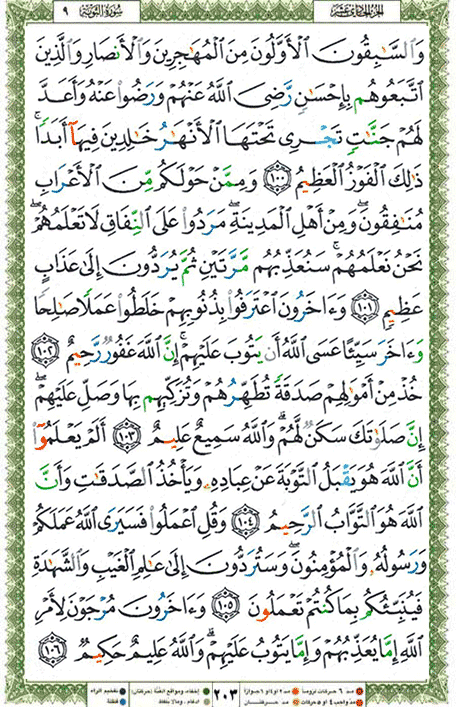 الجزء الحادي عشر سورة التوبة ٩
وَالسَّٰبِقُونَ الْأَوَّلُونَ مِنَ الْمُهَٰجِرِينَ وَالْأَنصَارِ وَالَّذِينَ
اتَّبَعُوهُم بِإِحْسَٰنٍ رَّضِيَ اللَّهُ عَنْهُمْ وَرَضُوا عَنْهُ وَأَعَدَّ
لَهُمْ جَنَّٰتٍ تَجْرِي تَحْتَهَا الْأَنْهَٰرُ خَٰلِدِينَ فِيهَا أَبَدًا ۚ
ذَٰلِكَ الْفَوْزُ الْعَظِيمُ ١٠٠ وَمِمَّنْ حَوْلَكُم مِّنَ الْأَعْرَابِ
مُنَٰفِقُونَ ۖ وَمِنْ أَهْلِ الْمَدِينَةِ ۖ مَرَدُوا عَلَى النِّفَاقِ لَا تَعْلَمُهُمْ ۖ
نَحْنُ نَعْلَمُهُمْ ۚ سَنُعَذِّبُهُم مَّرَّتَيْنِ ثُمَّ يُرَدُّونَ إِلَىٰ عَذَابٍ
عَظِيمٍ ١٠١ وَءَاخَرُونَ اعْتَرَفُوا بِذُنُوبِهِمْ خَلَطُوا عَمَلًا صَٰلِحًا
وَءَاخَرَ سَيِّئًا عَسَى اللَّهُ أَن يَتُوبَ عَلَيْهِمْ ۚ إِنَّ اللَّهَ غَفُورٌ رَّحِيمٌ ١٠٢
خُذْ مِنْ أَمْوَٰلِهِمْ صَدَقَةً تُطَهِّرُهُمْ وَتُزَكِّيهِم بِهَا وَصَلِّ عَلَيْهِمْ ۖ
إِنَّ صَلَوٰتَكَ سَكَنٌ لَّهُمْ ۗ وَاللَّهُ سَمِيعٌ عَلِيمٌ ١٠٣ أَلَمْ يَعْلَمُوا
أَنَّ اللَّهَ هُوَ يَقْبَلُ التَّوْبَةَ عَنْ عِبَادِهِ وَيَأْخُذُ الصَّدَقَٰتِ وَأَنَّ
اللَّهَ هُوَ التَّوَّابُ الرَّحِيمُ ١٠٤ وَقُلِ اعْمَلُوا فَسَيَرَى اللَّهُ عَمَلَكُمْ
وَرَسُولُهُ وَالْمُؤْمِنُونَ ۖ وَسَتُرَدُّونَ إِلَىٰ عَٰلِمِ الْغَيْبِ وَالشَّهَٰدَةِ
فَيُنَبِّئُكُم بِمَا كُنتُمْ تَعْمَلُونَ ١٠٥ وَءَاخَرُونَ مُرْجَوْنَ لِأَمْرِ
اللَّهِ إِمَّا يُعَذِّبُهُمْ وَإِمَّا يَتُوبُ عَلَيْهِمْ ۗ وَاللَّهُ عَلِيمٌ حَكِيمٌ ١٠٦
مد ٦ حركات لزوماً مد ٢ او ٤ او ٦ جوازاً ٢٠٣ إخفاء، ومواقع الغنّة (حركتان) تفخيم الراء
مد واجب ٤ او ٥ حركات مد حركتان إدغام، وما لا يلفظ قلقلة